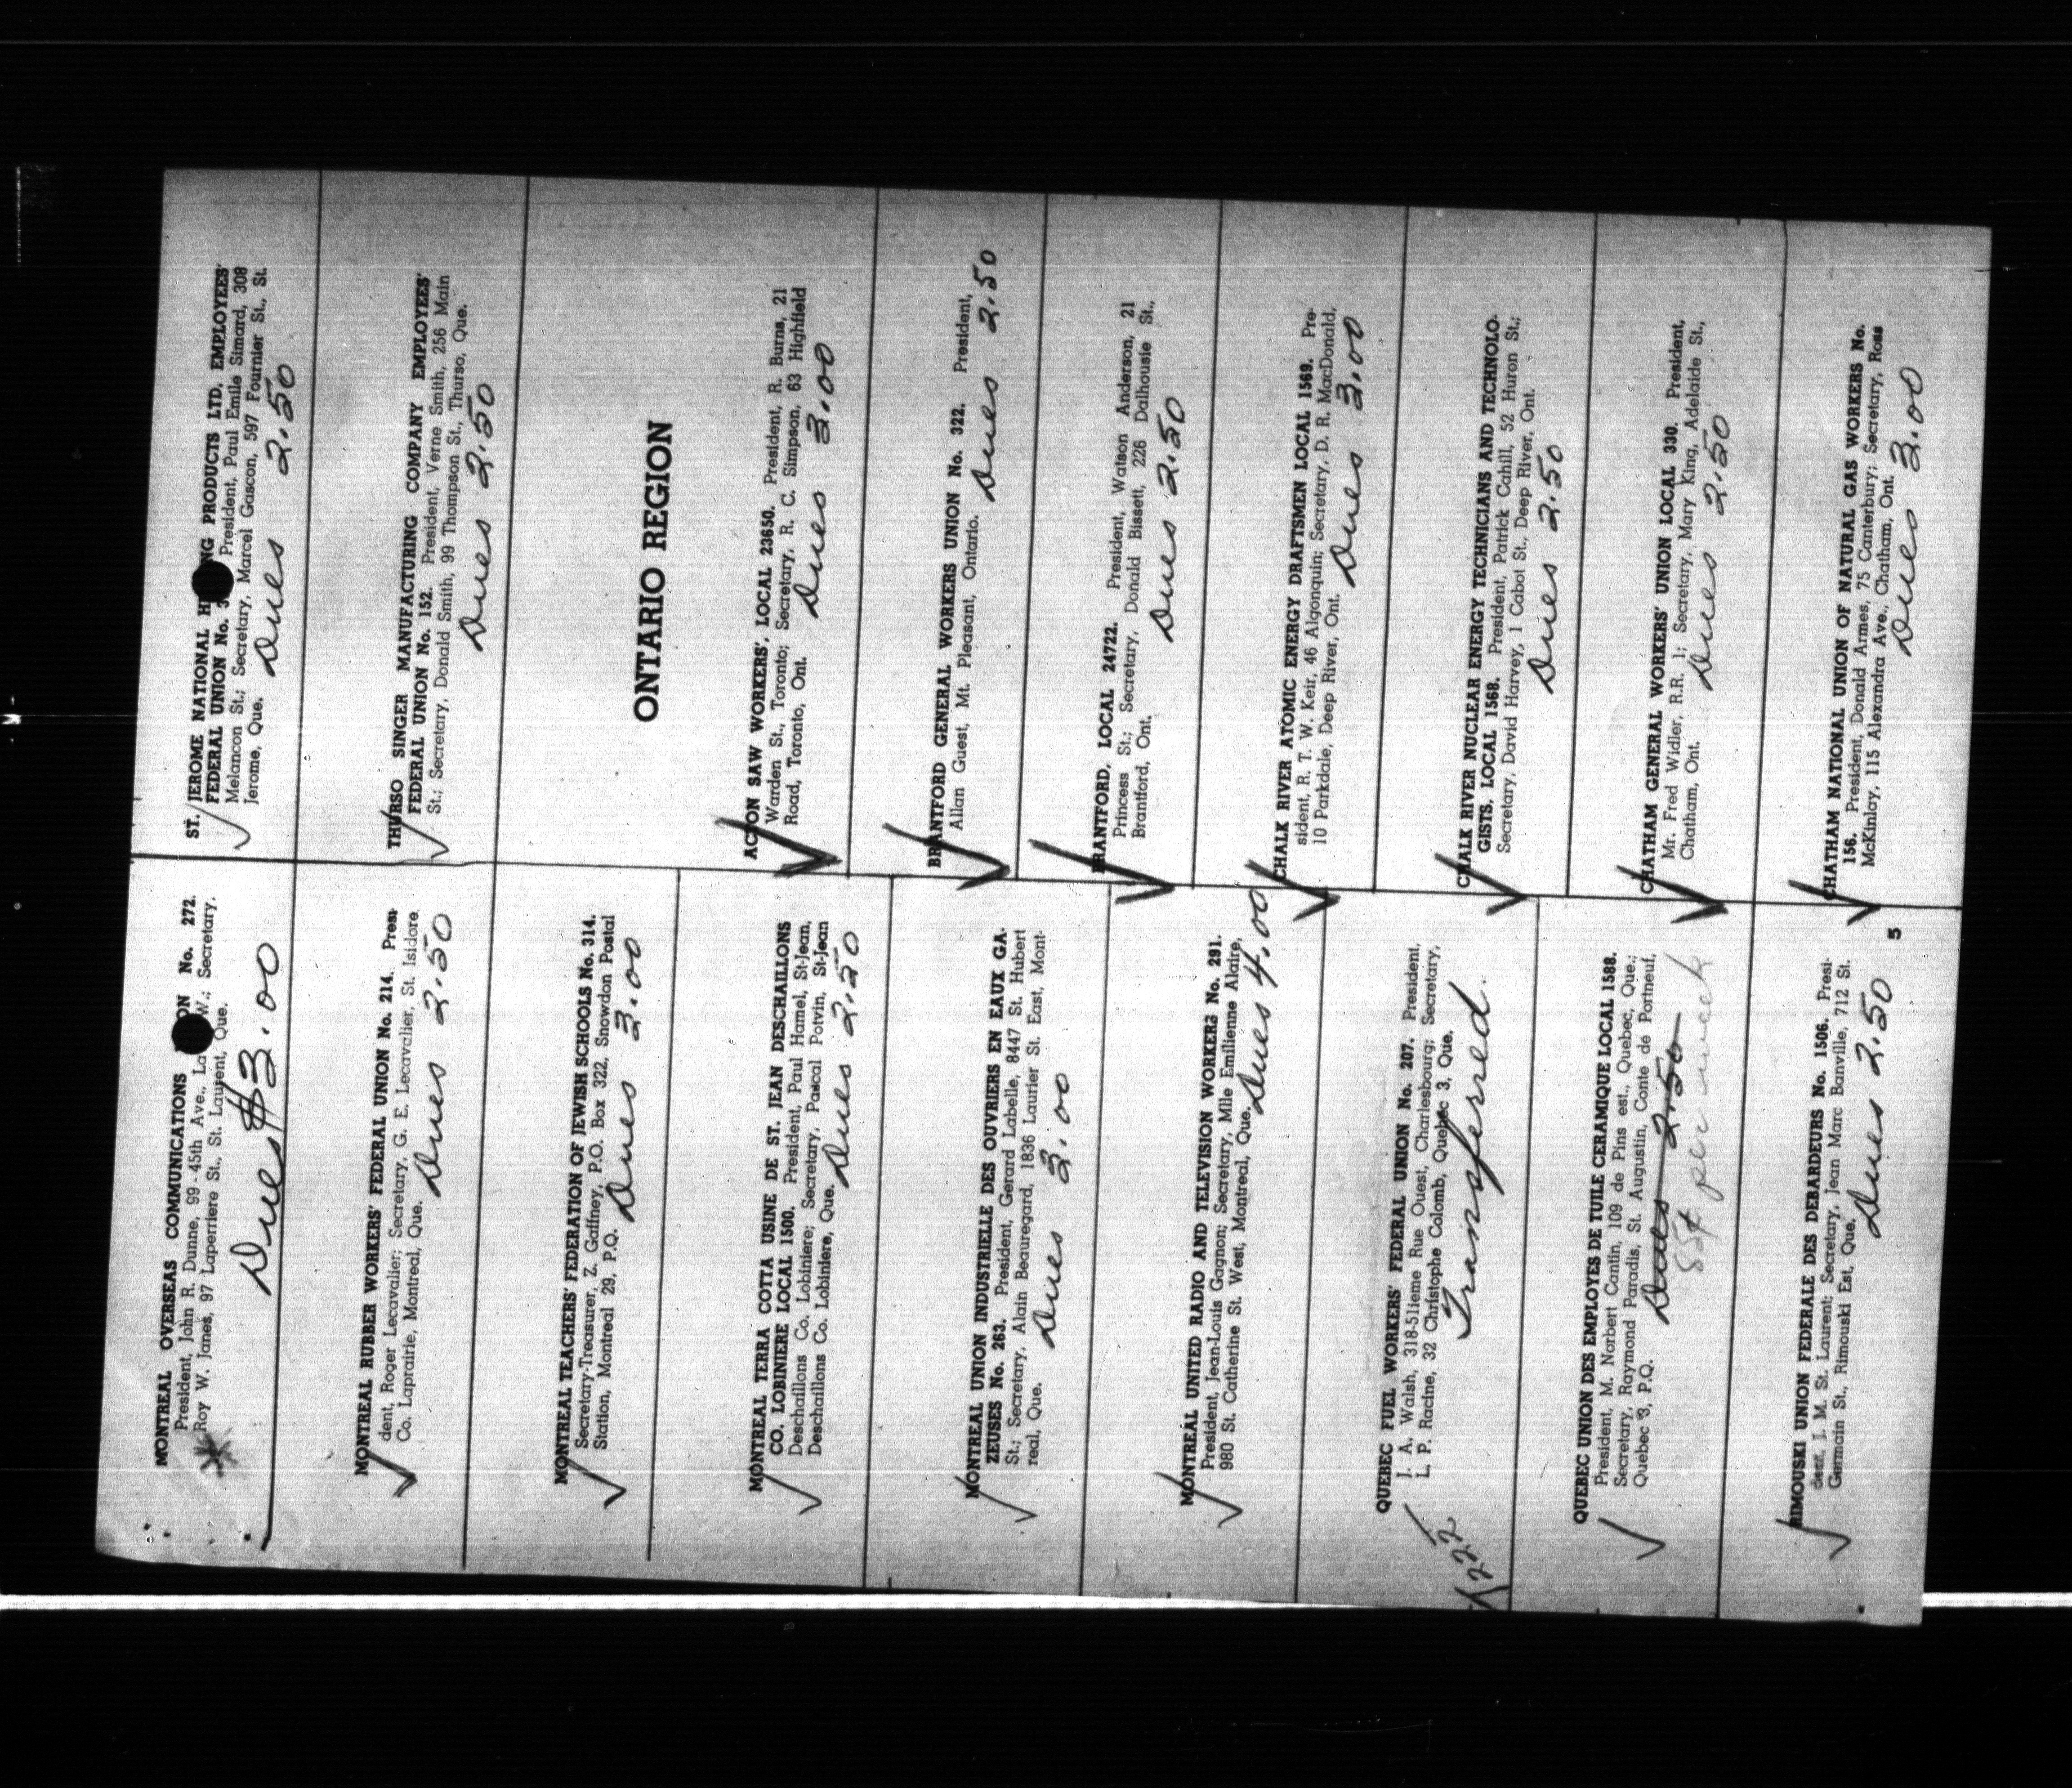 MONTREAL OVERSEAS COMMUNICATIONS No. 272.
President, John R. Dunne, 99 - 45th Ave., W.; Secretary,
Roy W. Janes, 97 Laperriere St., St. Laurent, Que.
Dues $3.00
MONTREAL RUBBER WORKERS' FEDERAL UNION No. 214. Presi-
dent, Roger Lecavalier; Secretary, G. E. Lecavallier, St. Isidore.
Co. Laprairie, Montreal, Que.
Dues 2.50
MONTREAL TEACHERS' FEDERATION OF JEWISH SCHOOLS No. 314.
Secretary-Treasurer, Z. Gaffney, P.O. Box 322, Snowdon Postal
Station, Montreal 29, P.Q.
Dues 3.00
MONTREAL TERRA COTTA USINE DE ST. JEAN DESCHAILLONS
CO. LOBINIERE LOCAL 1500. President, Paul Hamel, St-Jean,
Deschaillons Co. Lobiniere; Secretary, Pascal Potvin, St-Jean
Deschaillons Co. Lobiniere, Que.
Dues 2.50
MONTREAL UNION INDUSTRIELLE DES OUVRIERS EN EAUX GA-
ZEUSES No. 263. President, Gerard Labelle, 8447 St. Hubert
St.; Secretary, Alain Beauregard, 1836 Laurier St. East, Mont-
real, Que.
Dues 3.00
MONTREAL UNITED RADIO AND TELEVISION WORKERS No. 291.
President, Jean-Louis Gagnon; Secretary, Mlle Emilienne Alaire,
980 St. Catherine St. West, Montreal, Que.
Dues 4.00
QUEBEC FUEL WORKERS' FEDERAL UNION No. 207. President,
J. A. Walsh, 318-51ieme Rue Ouest, Charlesbourg; Secretary,
L. P. Racine, 32 Christophe Colomb, Quebec 3, Que.
Transferred.
222
QUEBEC UNION DES EMPLOYES DE TUILE CERAMIQUE LOCAL 1588.
President, M. Norbert Cantin, 109 de Pins est., Quebec, Que.;
Secretary, Raymond Paradis, St. Augustin, Conte de Portneuf,
Quebec 3, P.Q.
Dues 2.50
85¢ per week
RIMOUSKI UNION FEDERALE DES DEBARDEURS No. 1506. Presi-
dent, J. M. St. Laurent; Secretary, Jean Marc Banville, 712 St.
Germain St., Rimouski Est, Que.
Dues 2.50
5
ST. JEROME NATIONAL PRODUCTS LTD. EMPLOYEES'
FEDERAL UNION No. President, Paul Emile Simard, 308
Melancon St.; Secretary, Marcel Gascon, 597 Fournier St., St.
Jerome, Que.
Dues 2.50
THURSO SINGER MANUFACTURING COMPANY EMPLOYEES'
FEDERAL UNION No. 152. President, Verne Smith, 256 Main
St.; Secretary, Donald Smith, 99 Thompson St., Thurso, Que.
Dues 2.50
ONTARIO REGION
ACTON SAW WORKERS', LOCAL 23650. President, R. Burns, 21
Warden St., Toronto; Secretary, R. C. Simpson, 63 Highfield
Road, Toronto, Ont.
Dues 3.00
BRANTFORD GENERAL WORKERS UNION No. 322. President,
Allan Guest, Mt. Pleasant, Ontario.
Dues 2.50
BRANTFORD, LOCAL 24722. President, Watson Anderson, 21
Princess St.; Secretary, Donald Bissett, 226 Dalhousie St.,
Brantford, Ont.
Dues 2.50
CHALK RIVER ATOMIC ENERGY DRAFTSMEN LOCAL 1569. Pre-
sident, R. T. W. Keir, 46 Algonquin; Secretary, D. R. MacDonald,
10 Parkdale, Deep River, Ont.
Dues 3.00
CHALK RIVER NUCLEAR ENERGY TECHNICIANS AND TECHNOLO-
GISTS, LOCAL 1568. President, Patrick Cahill, 52 Huron St.;
Secretary, David Harvey, 1 Cabot St., Deep River, Ont.
Dues 2.50
CHATHAM GENERAL WORKERS' UNION LOCAL 330. President,
Mr. Fred Widler, R.R. 1; Secretary, Mary King, Adelaide St.,
Chatham, Ont.
Dues 2.50
CHATHAM NATIONAL UNION OF NATURAL GAS WORKERS No.
156. President, Donald Armes, 75 Canterbury; Secretary, Ross
McKinlay, 115 Alexandra Ave., Chatham, Ont.
Dues 3.00